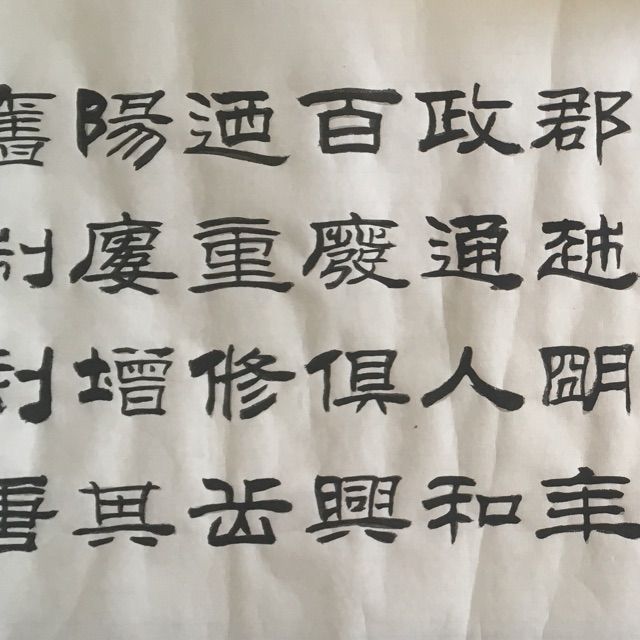 郡越朙年
政通人和
百廢俱興
迺重修岳
陽廔增其
舊制刻唐